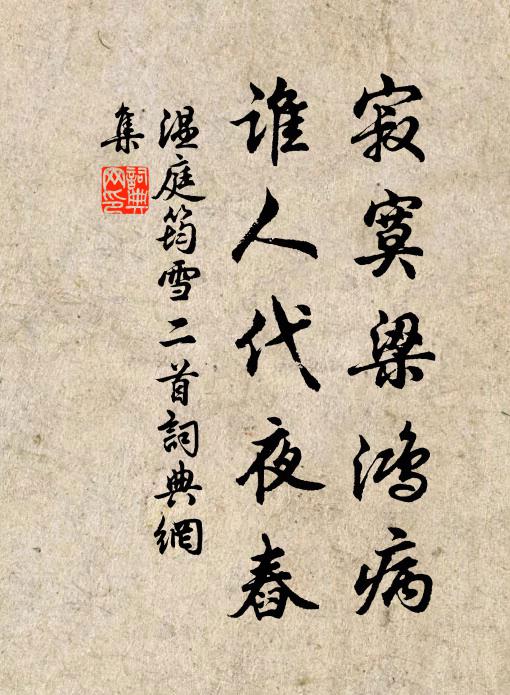 寂寞梁鸿病
谁人代夜舂
温庭筠雪二首詞典網
集
詞典
网印